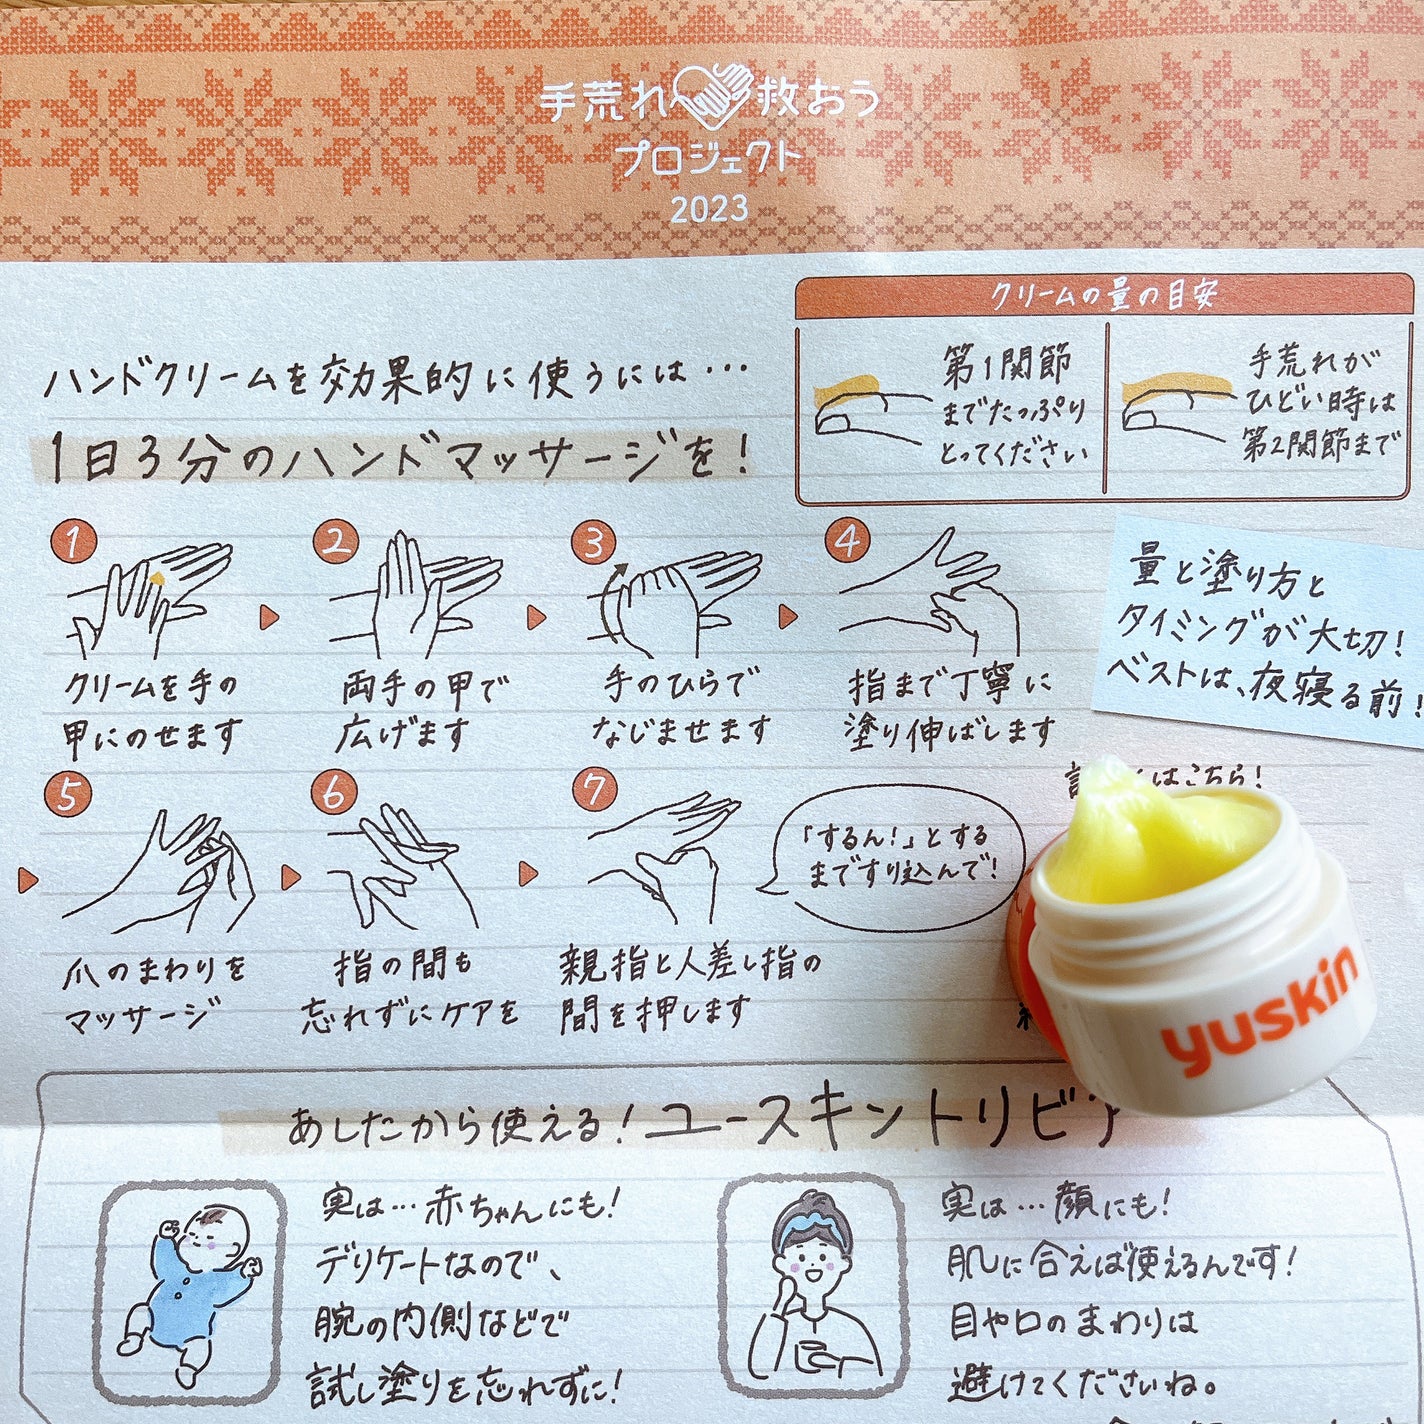 手荒れ救おう
プロジェクト
2023
クリームの量の目安
第1関節
までたっぷり
とってください
手荒れが
ひどい時は
第2関節まで
ハンドクリームを効果的に使うには…
1日3分のハンドマッサージを!
1
クリームを手の
甲にのせます
2
両手の甲で
広げます
3
手のひらで
なじませます
4
指まで丁寧に
塗り伸ばします
量と塗り方と
タイミングが大切!
ベストは、夜寝る前!
はこちら!
5
爪のまわりを
マッサージ
6
指の間も
忘れずにケアを
7
親指と人差し指の
間を押します
「するん!」とする
まですり込んで!
yuskin
あしたから使える!ユースキントリビア
実は…赤ちゃんにも!
デリケートなので、
腕の内側などで
試し塗りを忘れずに!
実は…顔にも!
肌に合えば使えるんです!
目や口のまわりは
避けてくださいね。